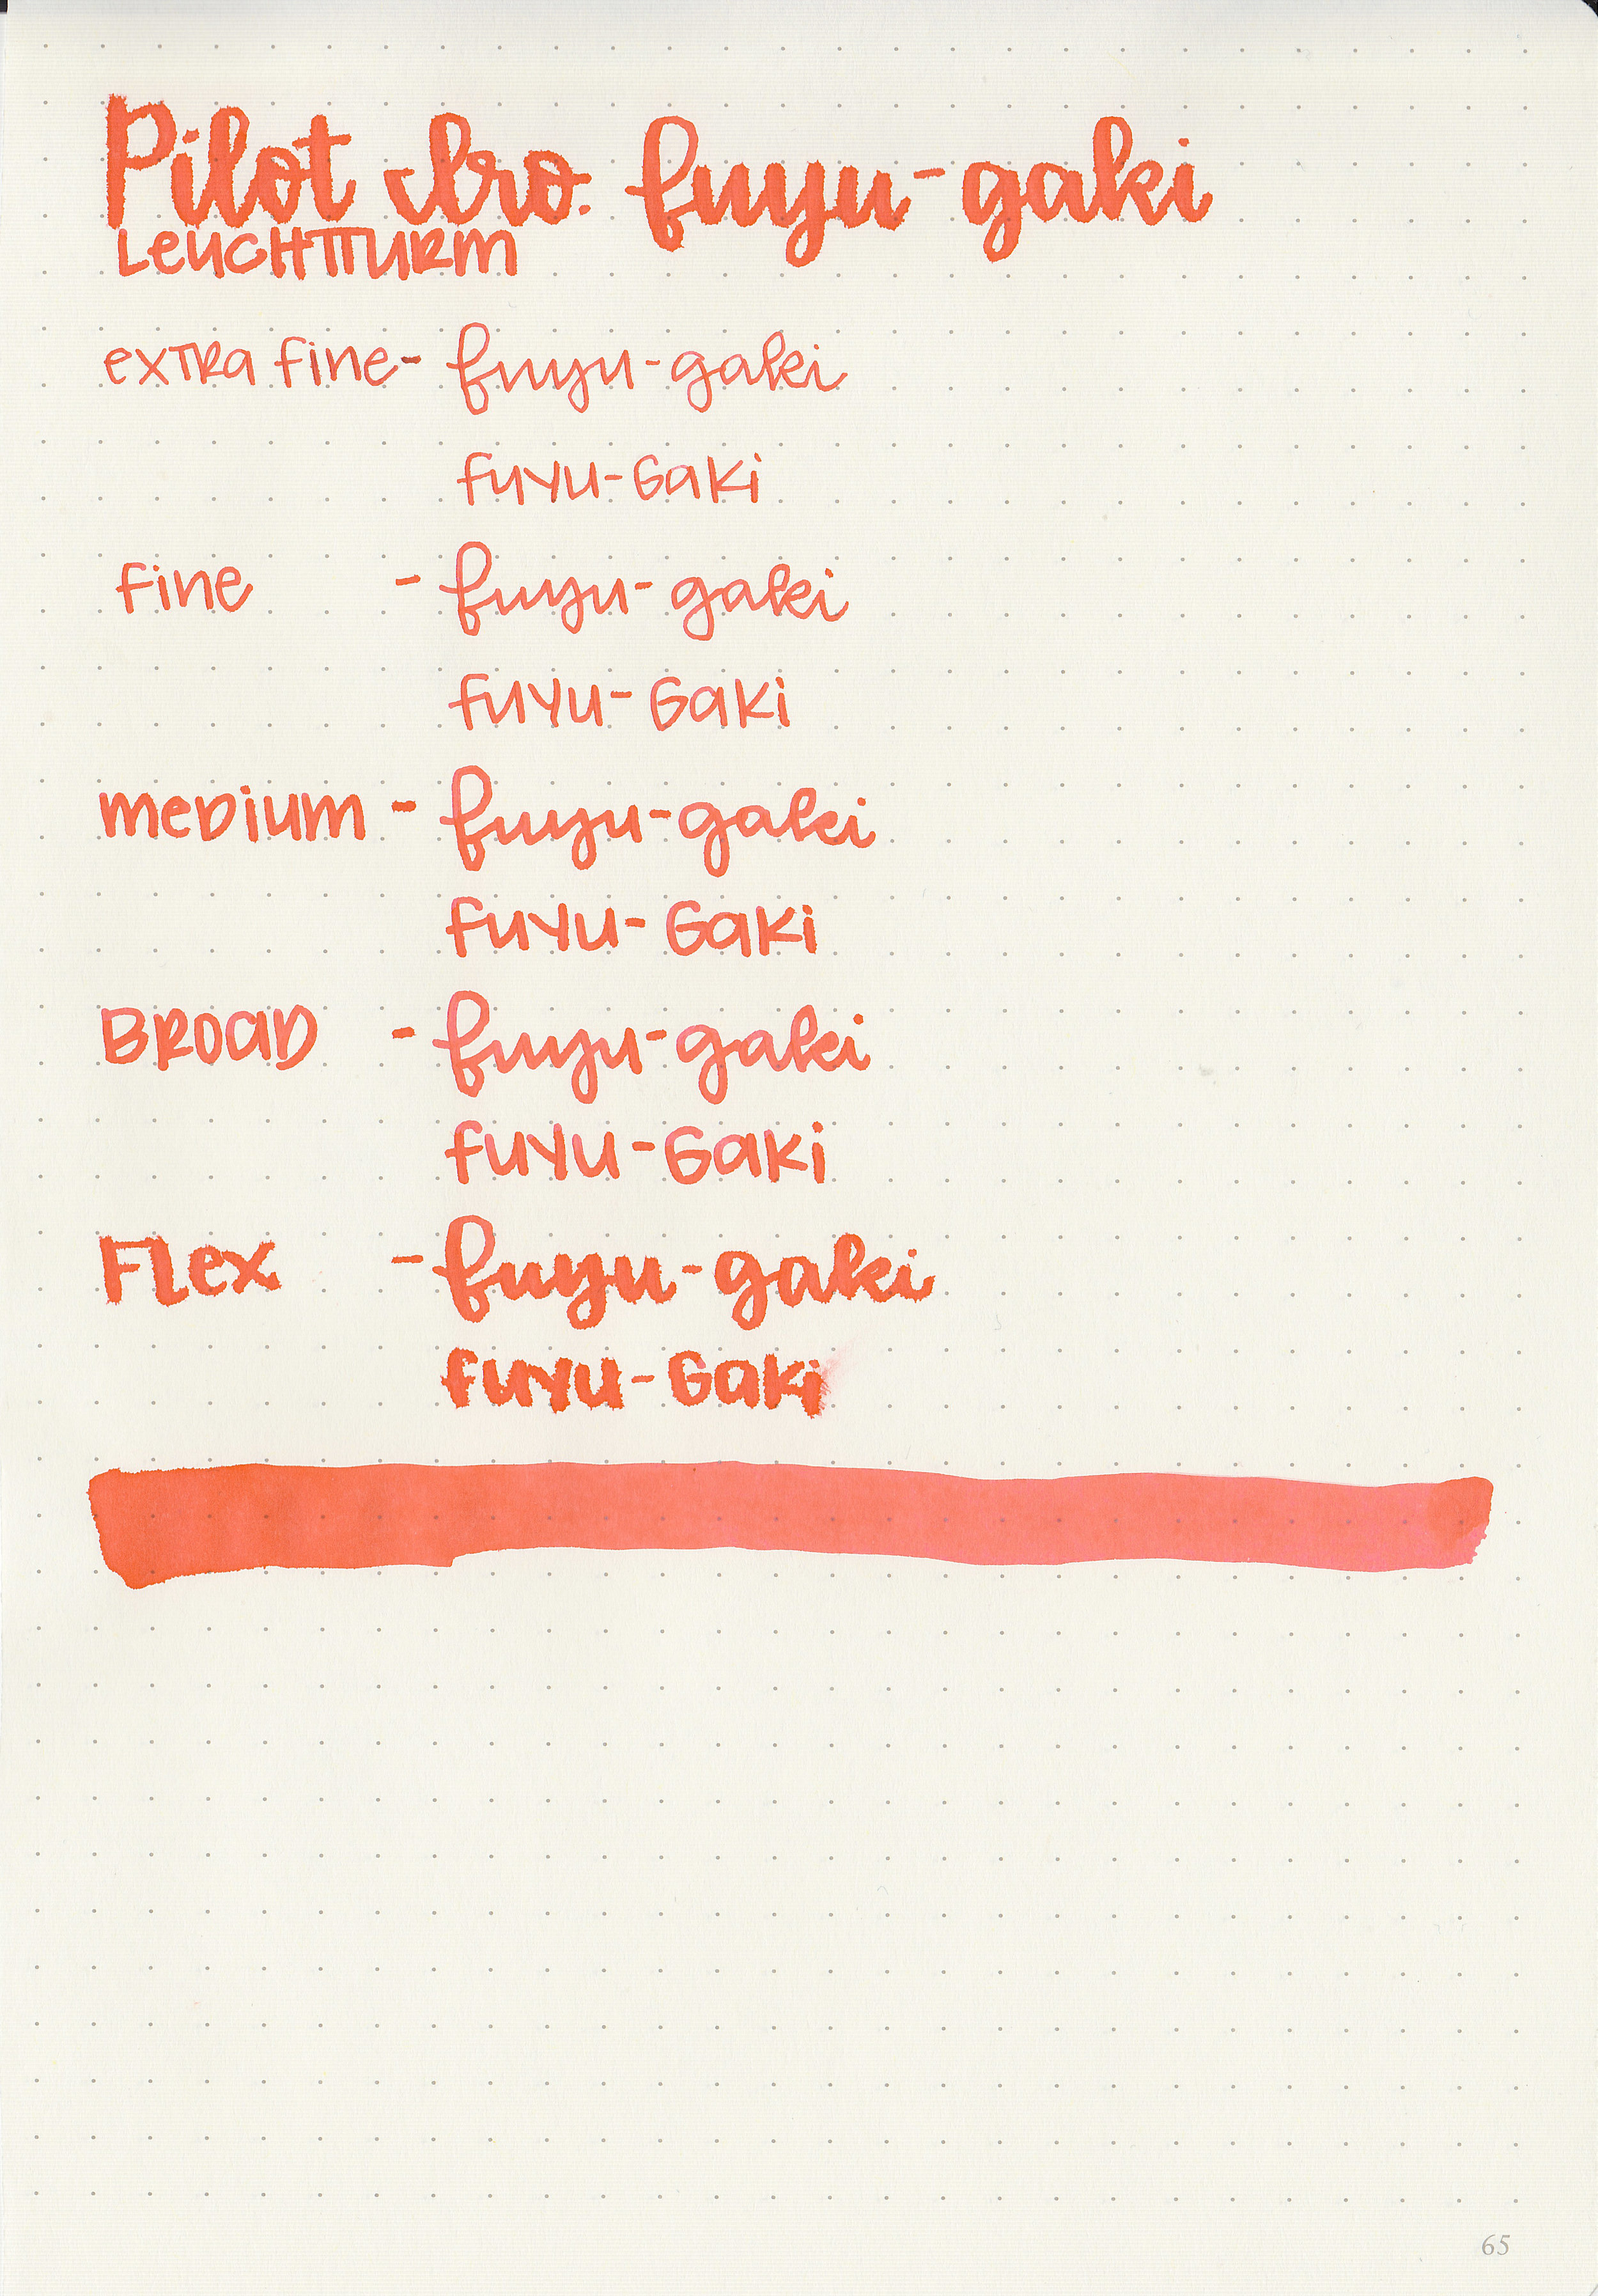 Pilot Iro. fuyu-gaki
Leuchtturm
extra fine - fuyu-gaki
fuyu-Gaki
fine - fuyu-gaki
fuyu-Gaki
medium - fuyu-gaki
fuyu-Gaki
Broad - fuyu-gaki
fuyu-Gaki
Flex - fuyu-gaki
fuyu-Gaki
65